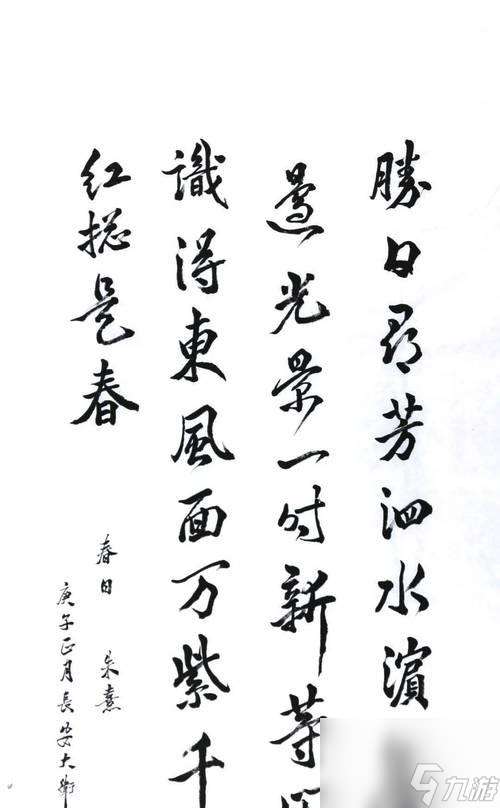 勝日尋芳泗水濱
邊光景一时新等
識得東風面万紫千
红揔是春
春日 朱熹
庚子正月長安大衛
九游